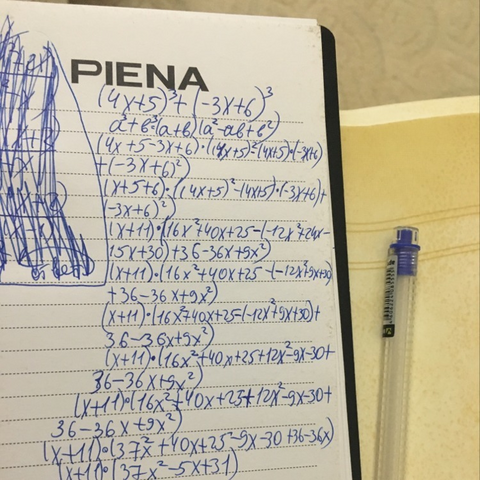 PIENA
(4x+5)³+(-3x+6)³
a³+b³=(a+b)(a²-ab+b²)
(4x+5-3x+6)·((4x+5)²-(4x+5)·(-3x+6)
+(-3x+6)²)
(x+5+6)·((4x+5)²-(4x+5)·(-3x+6)+
(-3x+6)²)
(x+11)·(16x²+40x+25-(-12x²+24x-
15x+30)+36-36x+9x²)
(x+11)·(16x²+40x+25-(-12x²+9x+30)
+36-36x+9x²)
(x+11)·(16x²+40x+25-(-12x²+9x+30)+
36-36x+9x²)
(x+11)·(16x²+40x+25+12x²-9x-30+
36-36x+9x²)
(x+11)·(16x²+40x+25+12x²-9x-30+
36-36x+9x²)
(x+11)·(37x²+40x+25-9x-30+36-36x)
(x+11)·(37x²-5x+31)